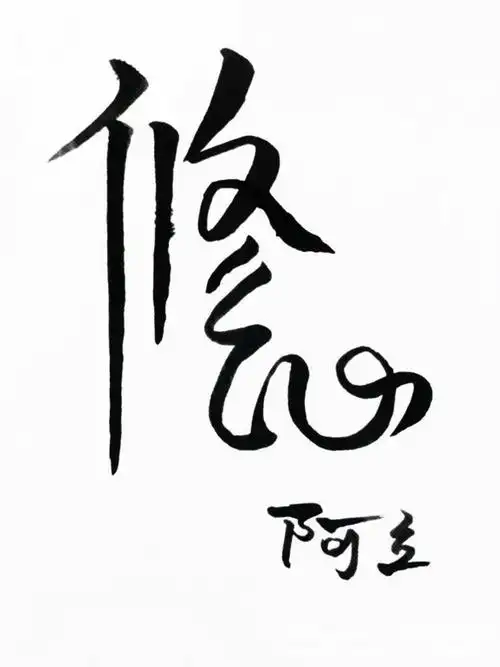 修心
阿立